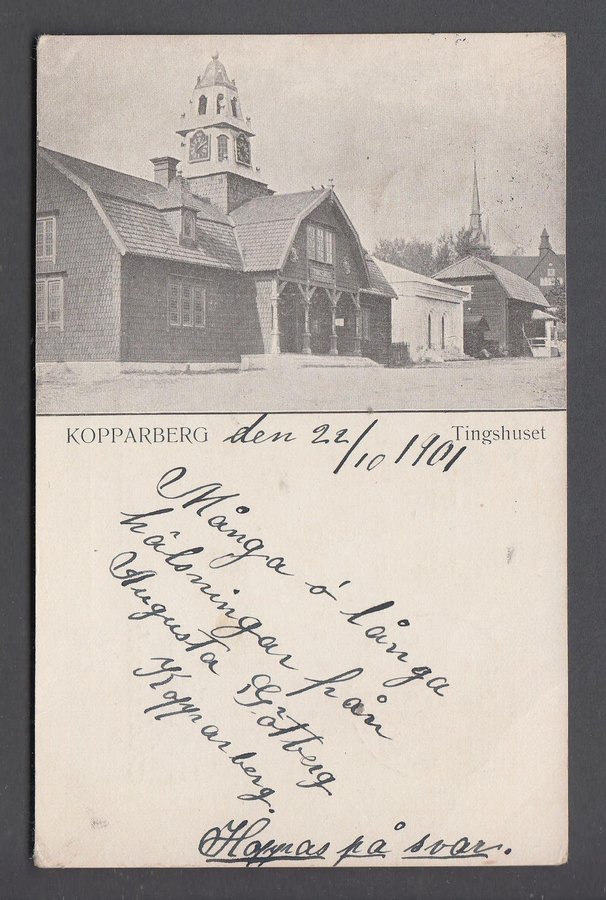 KOPPARBERG den 22/10 1901 Tingshuset
Många ó långa
hälsningar från
Augusta Götberg
Kopparberg.
Hoppas på svar.